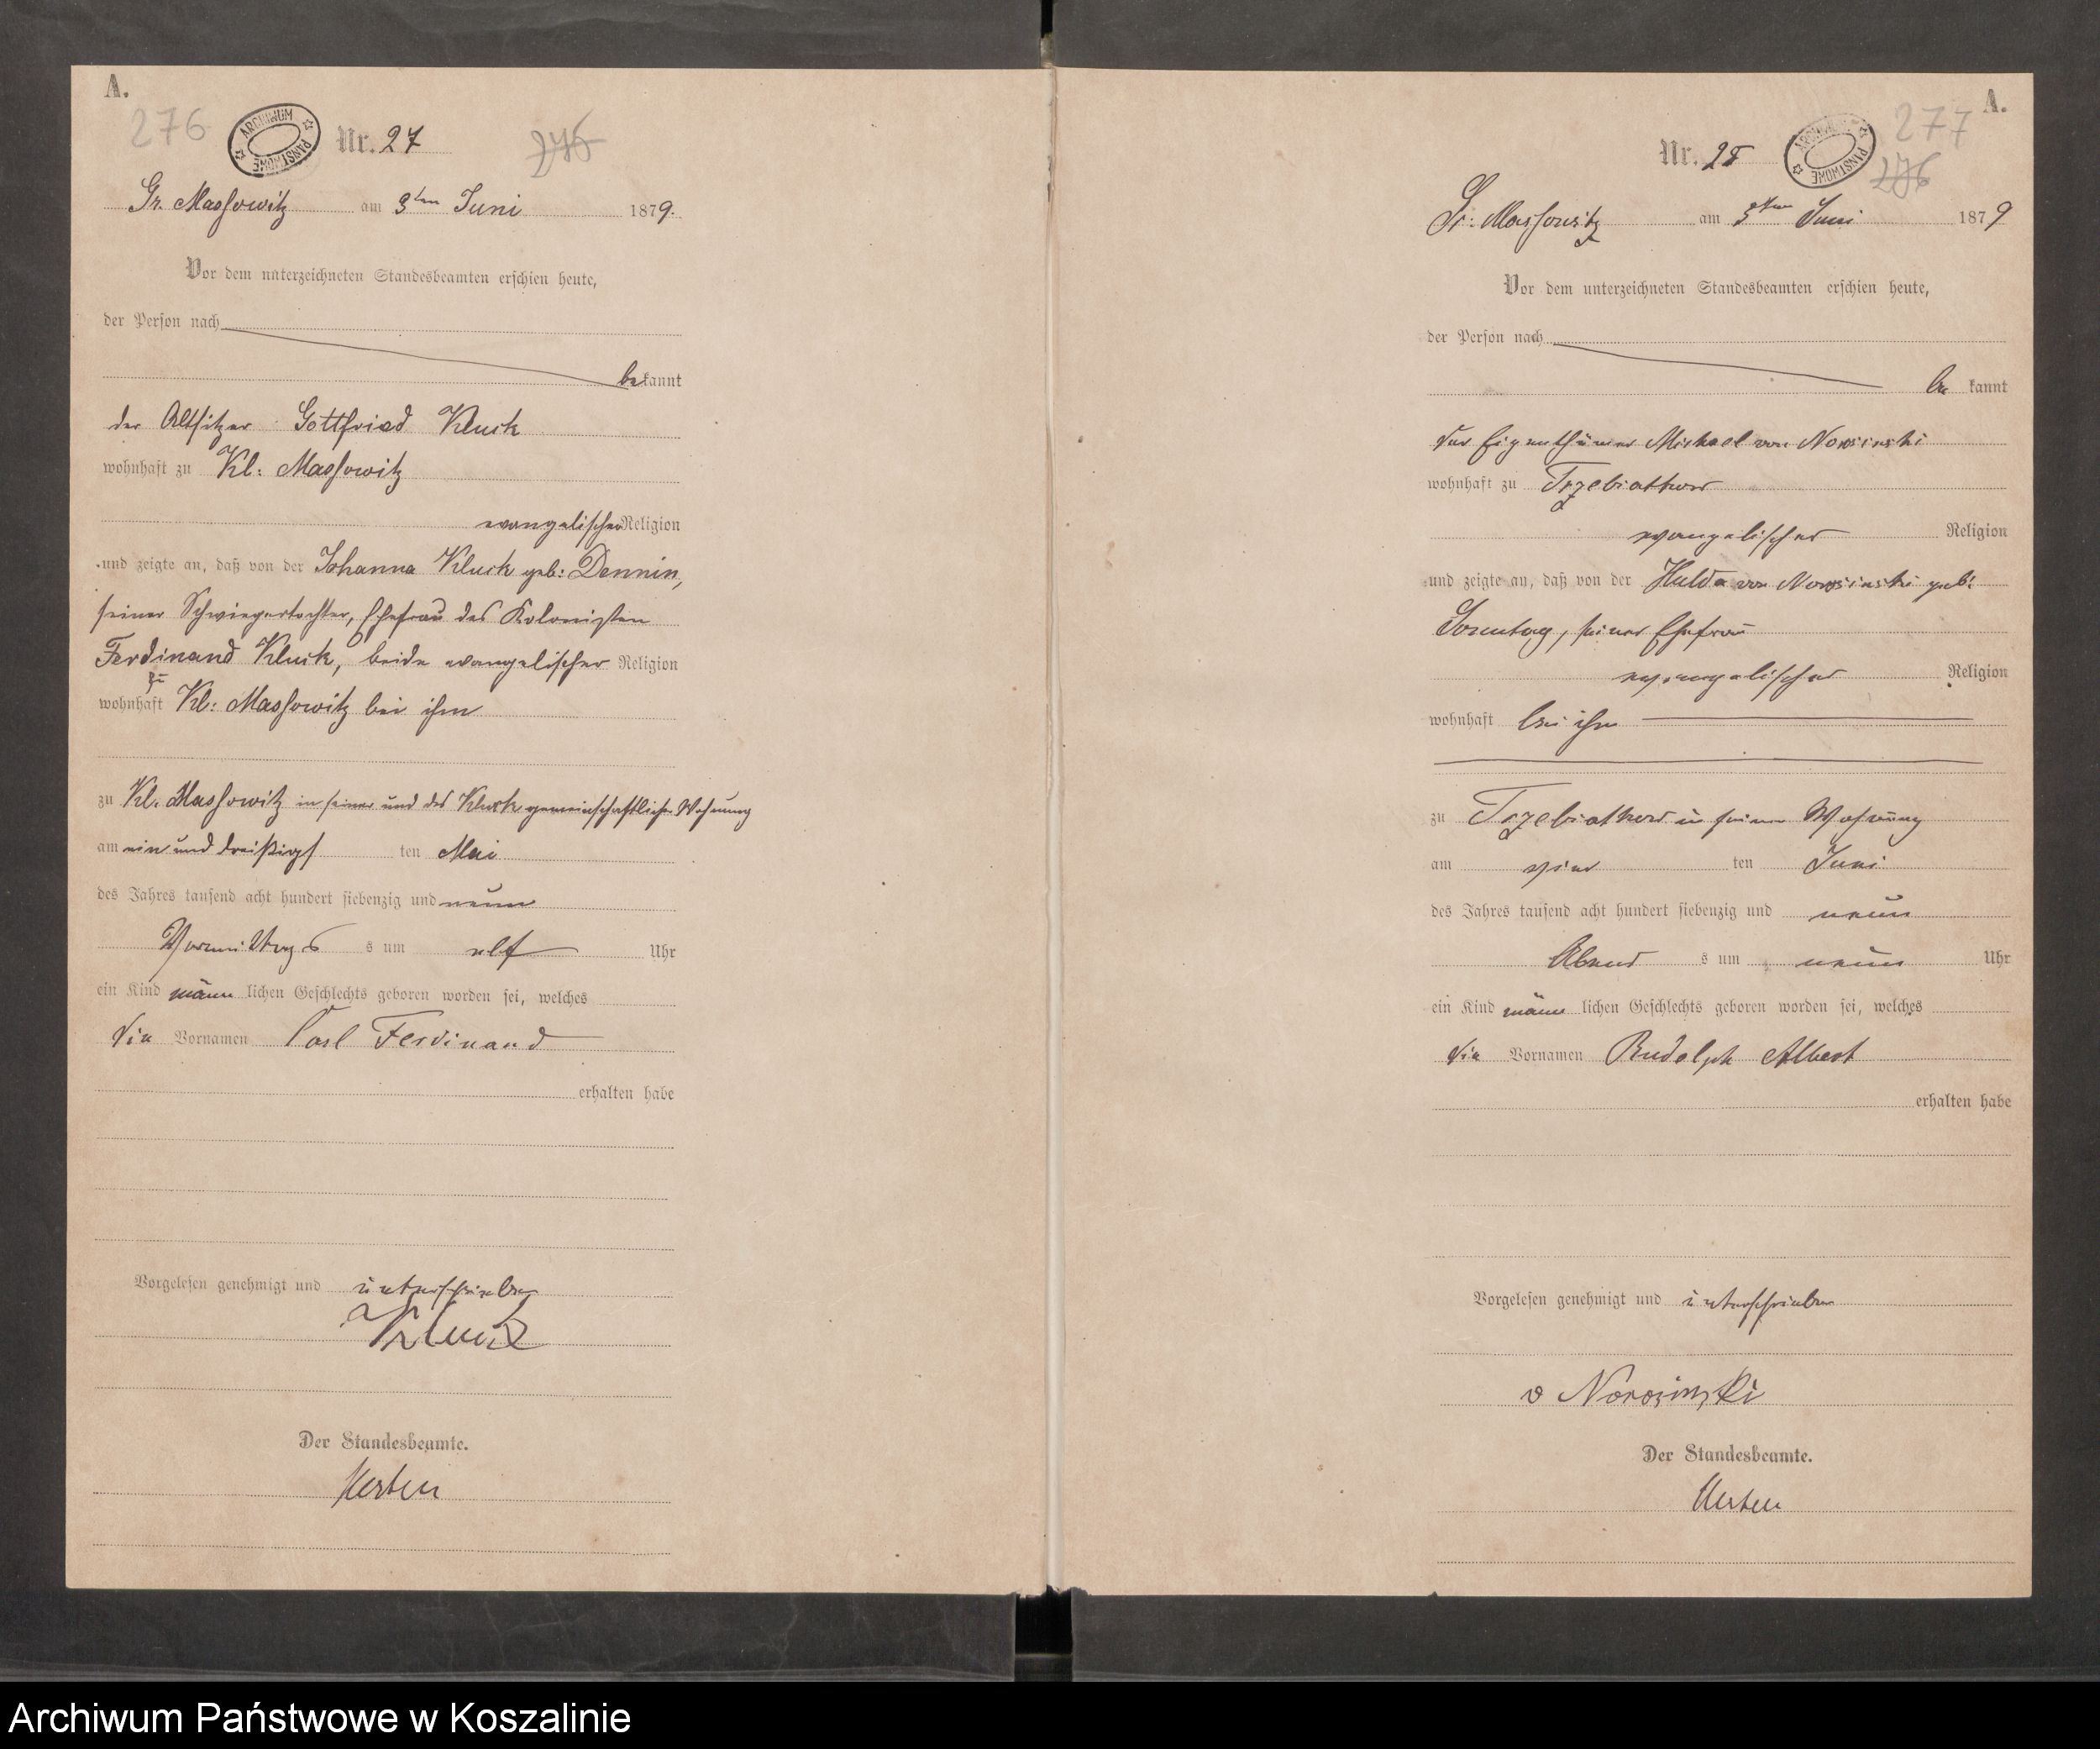 A.
276
ARCHIWUM PAŃSTWOWE
Nr. 27
276
Gr. Massowitz am 3ten Juni 1879.
Vor dem unterzeichneten Standesbeamten erschien heute,
der Person nach
bekannt
der Altsitzer Gottfried Kluck
wohnhaft zu Kl: Massowitz
evangelischer Religion
und zeigte an, daß von der Johanna Kluck geb: Dennin,
seiner Schwiegertochter, Ehefrau des Kolonisten
Ferdinand Kluck, beide evangelischer Religion
zu
wohnhaft Kl: Massowitz bei ihm
zu Kl. Massowitz in seiner und des Kluck gemeinschaftlicher Wohnung
am ein und dreißigs ten Mai
des Jahres tausend acht hundert siebenzig und neun
Vormittags s um elf Uhr
ein Kind männ lichen Geschlechts geboren worden sei, welches
die Vornamen Carl Ferdinand
erhalten habe
Vorgelesen genehmigt und unterschrieben
Kluck
Der Standesbeamte.
Merten
A.
277
ARCHIWUM PAŃSTWOWE
Nr. 28
276
Gr: Massowitz am 5ten Juni 1879
Vor dem unterzeichneten Standesbeamten erschien heute,
der Person nach
be kannt
der Eigenthümer Michael von
wohnhaft zu Trzebiatkow
evangelischer Religion
und zeigte an, daß von der Hulda von geb:
Sonntag, seiner Ehefrau
evangelischer Religion
wohnhaft bei ihm
zu Trzebiatkow in seiner Wohnung
am vier ten Juni
des Jahres tausend acht hundert siebenzig und neun
Abend s um neun Uhr
ein Kind männ lichen Geschlechts geboren worden sei, welches
die Vornamen Rudolph Albert
erhalten habe
Vorgelesen genehmigt und unterschrieben
v
Der Standesbeamte.
Merten
Archiwum Państwowe w Koszalinie